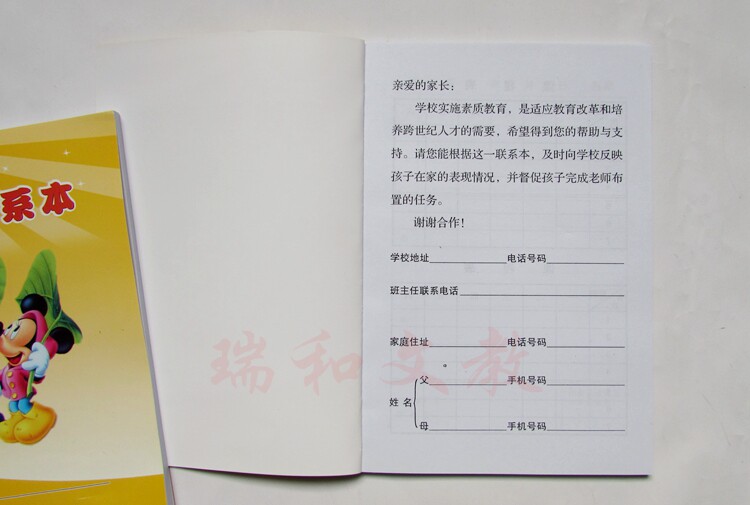 系本
亲爱的家长：
学校实施素质教育，是适应教育改革和培
养跨世纪人才的需要，希望得到您的帮助与支
持。请您能根据这一联系本，及时向学校反映
孩子在家的表现情况，并督促孩子完成老师布
置的任务。
谢谢合作！
学校地址 电话号码
班主任联系电话
家庭住址 电话号码
父 手机号码
姓 名
母 手机号码
瑞和文教